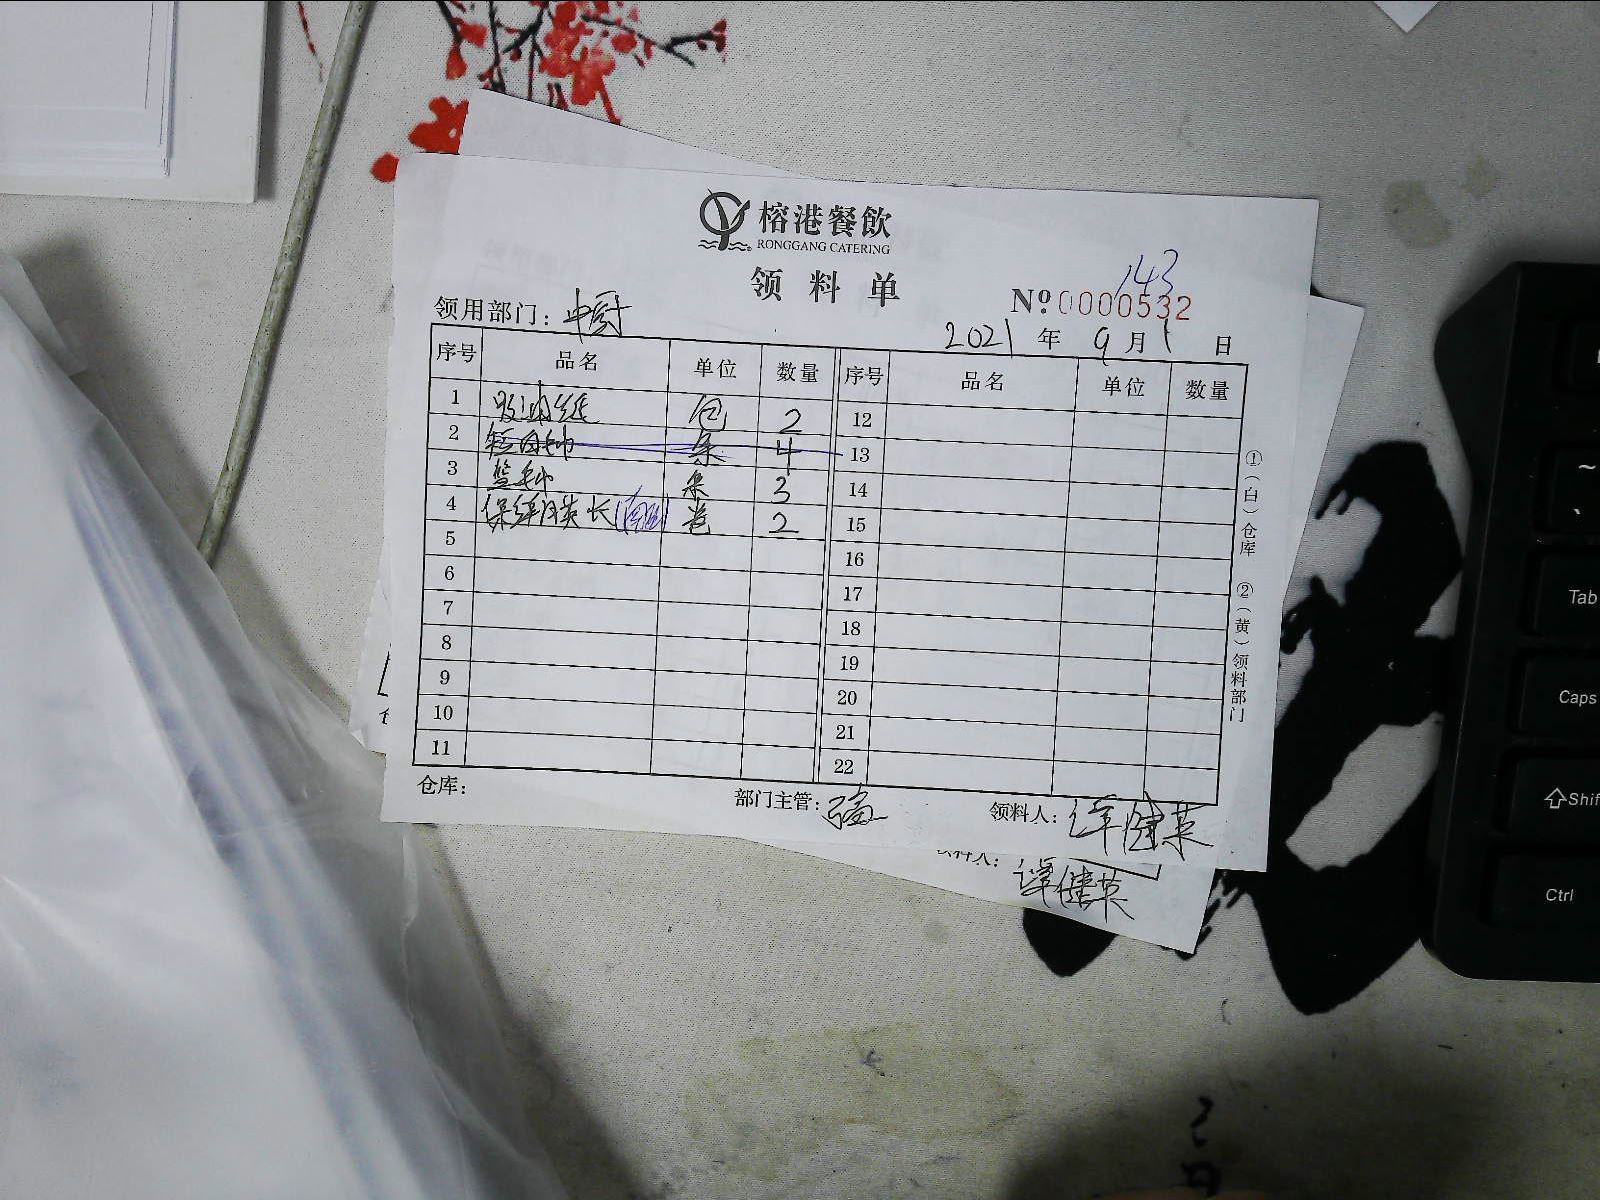 榕港餐飲
RONGGANG CATERING
领料单
143
№0000532
领用部门：中厨
2021年9月1日
序号 品名 单位 数量 序号 品名 单位 数量
1 吸油纸 包 2 12
2 条 4 13
3 蓝毛巾 条 3 14
4 保鲜膜 长 卷 2 15
5 16
6 17
7 18
8 19
9 20
10 21
11 22
①（白）仓库 ②（黄）领料部门
仓库： 部门主管： 领料人：谭健英
谭健英
Tab
Caps
Shif
Ctrl